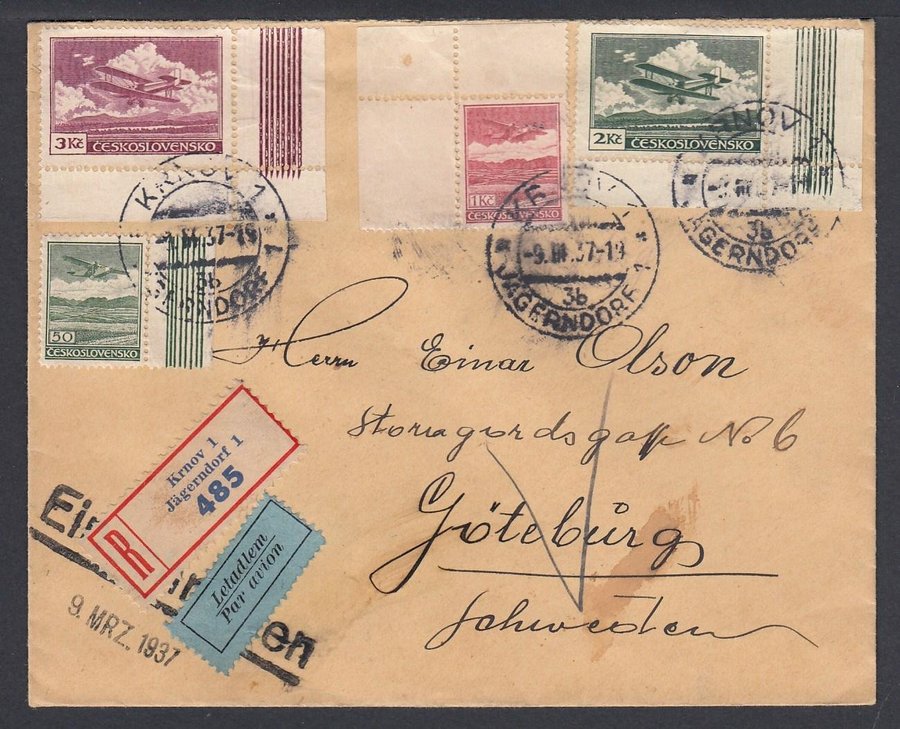 3 Kč
ČESKOSLOVENSKO
1 Kč
ČESKOSLOVENSKO
2 Kč
ČESKOSLOVENSKO
50
ČESKOSLOVENSKO
KRNOV 1
-9.III.37-19
3b
JÄGERNDORF 1
KRNOV 1
-9.III.37-19
3b
JÄGERNDORF 1
KRNOV 1
-9.III.37-19
3b
JÄGERNDORF
Herrn Einar Olson
No 6
Göteburg
Schweden
R
Krnov 1
Jägerndorf 1
485
Letadlem
Par avion
9. MRZ. 1937